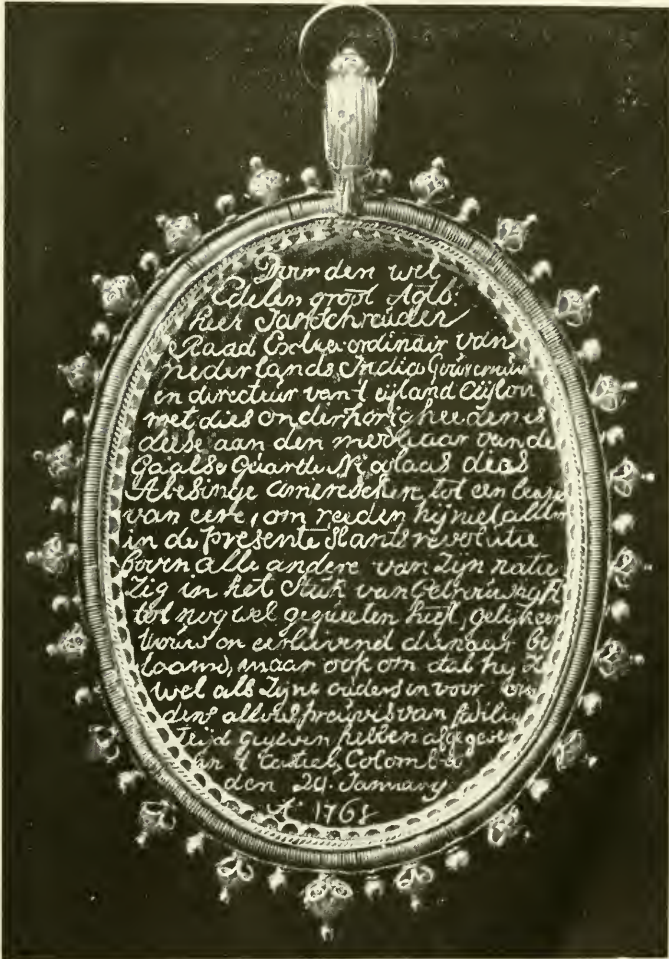 Door den wel
Edelen groot Agtb:
heer Jan Schreuder
Raad Extra-ordinair van
nederlands India Gouverneur
en directeur van 't eijland Ceijlon
met dies onderhorigheeden is
deese aan den van de
Gaalse Quarde dias
Abesinge Amereschere, tot een
van eere, om reeden hij niet alleen
in de presente Slants revolutie
boven alle andere van Zijn natie
Zig in het Stuk van
tot nog wel gequeten heeft, gelijk een
trouw en eerlievend dienaer
taamd, maar ook om dat hij Zo
wel als Zijne ouders in voor
dens van
teijd gegeven hebben afgegeven
in 't Casteel Colombo
den 24. January
Ao 1761